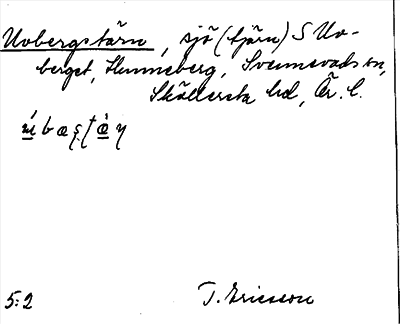 Uvbergstärn, sjö (tjärn) S Uv-
berget, Hunneberg, Svennevads sn,
Sköllersta hd, Ör. l.
5:2 T. Ericsson